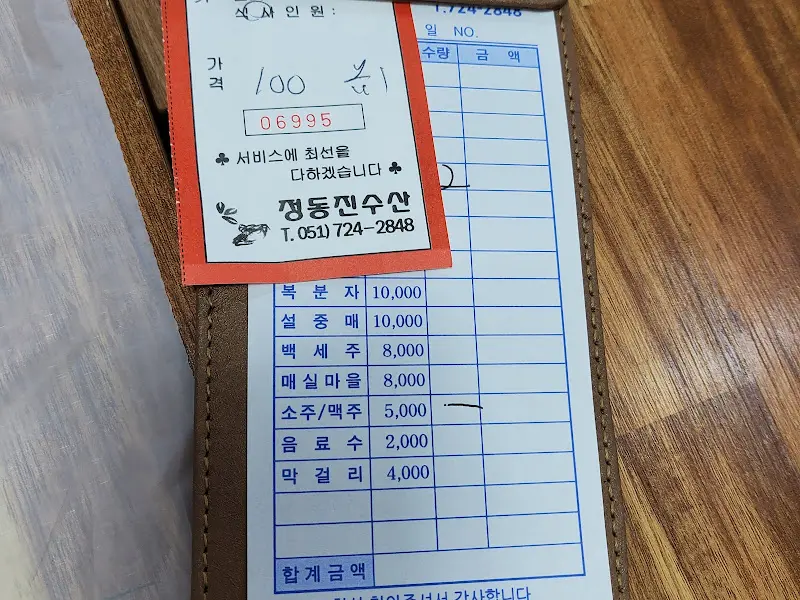 식사인원:
가격 100
06995
♣ 서비스에 최선을
다하겠습니다 ♣
정동진수산
T. 051) 724-2848
T.724-2848
일 NO.
수량 금 액
2
복 분 자 10,000
설 중 매 10,000
백 세 주 8,000
매실마을 8,000
소주/맥주 5,000
음 료 수 2,000
막 걸 리 4,000
합계금액
감사합니다